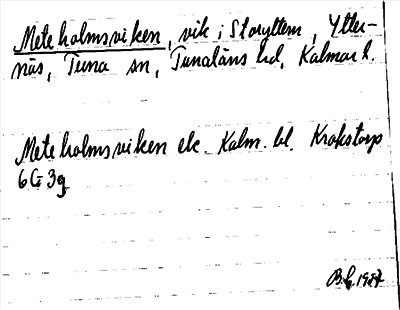 Meteholmsviken, vik i Storyttern, Ytter-
näs, Tuna sn, Tunaläns hd, Kalmar l.
Meteholmsviken ek Kalm. bl. Krokstorp
6G 3g